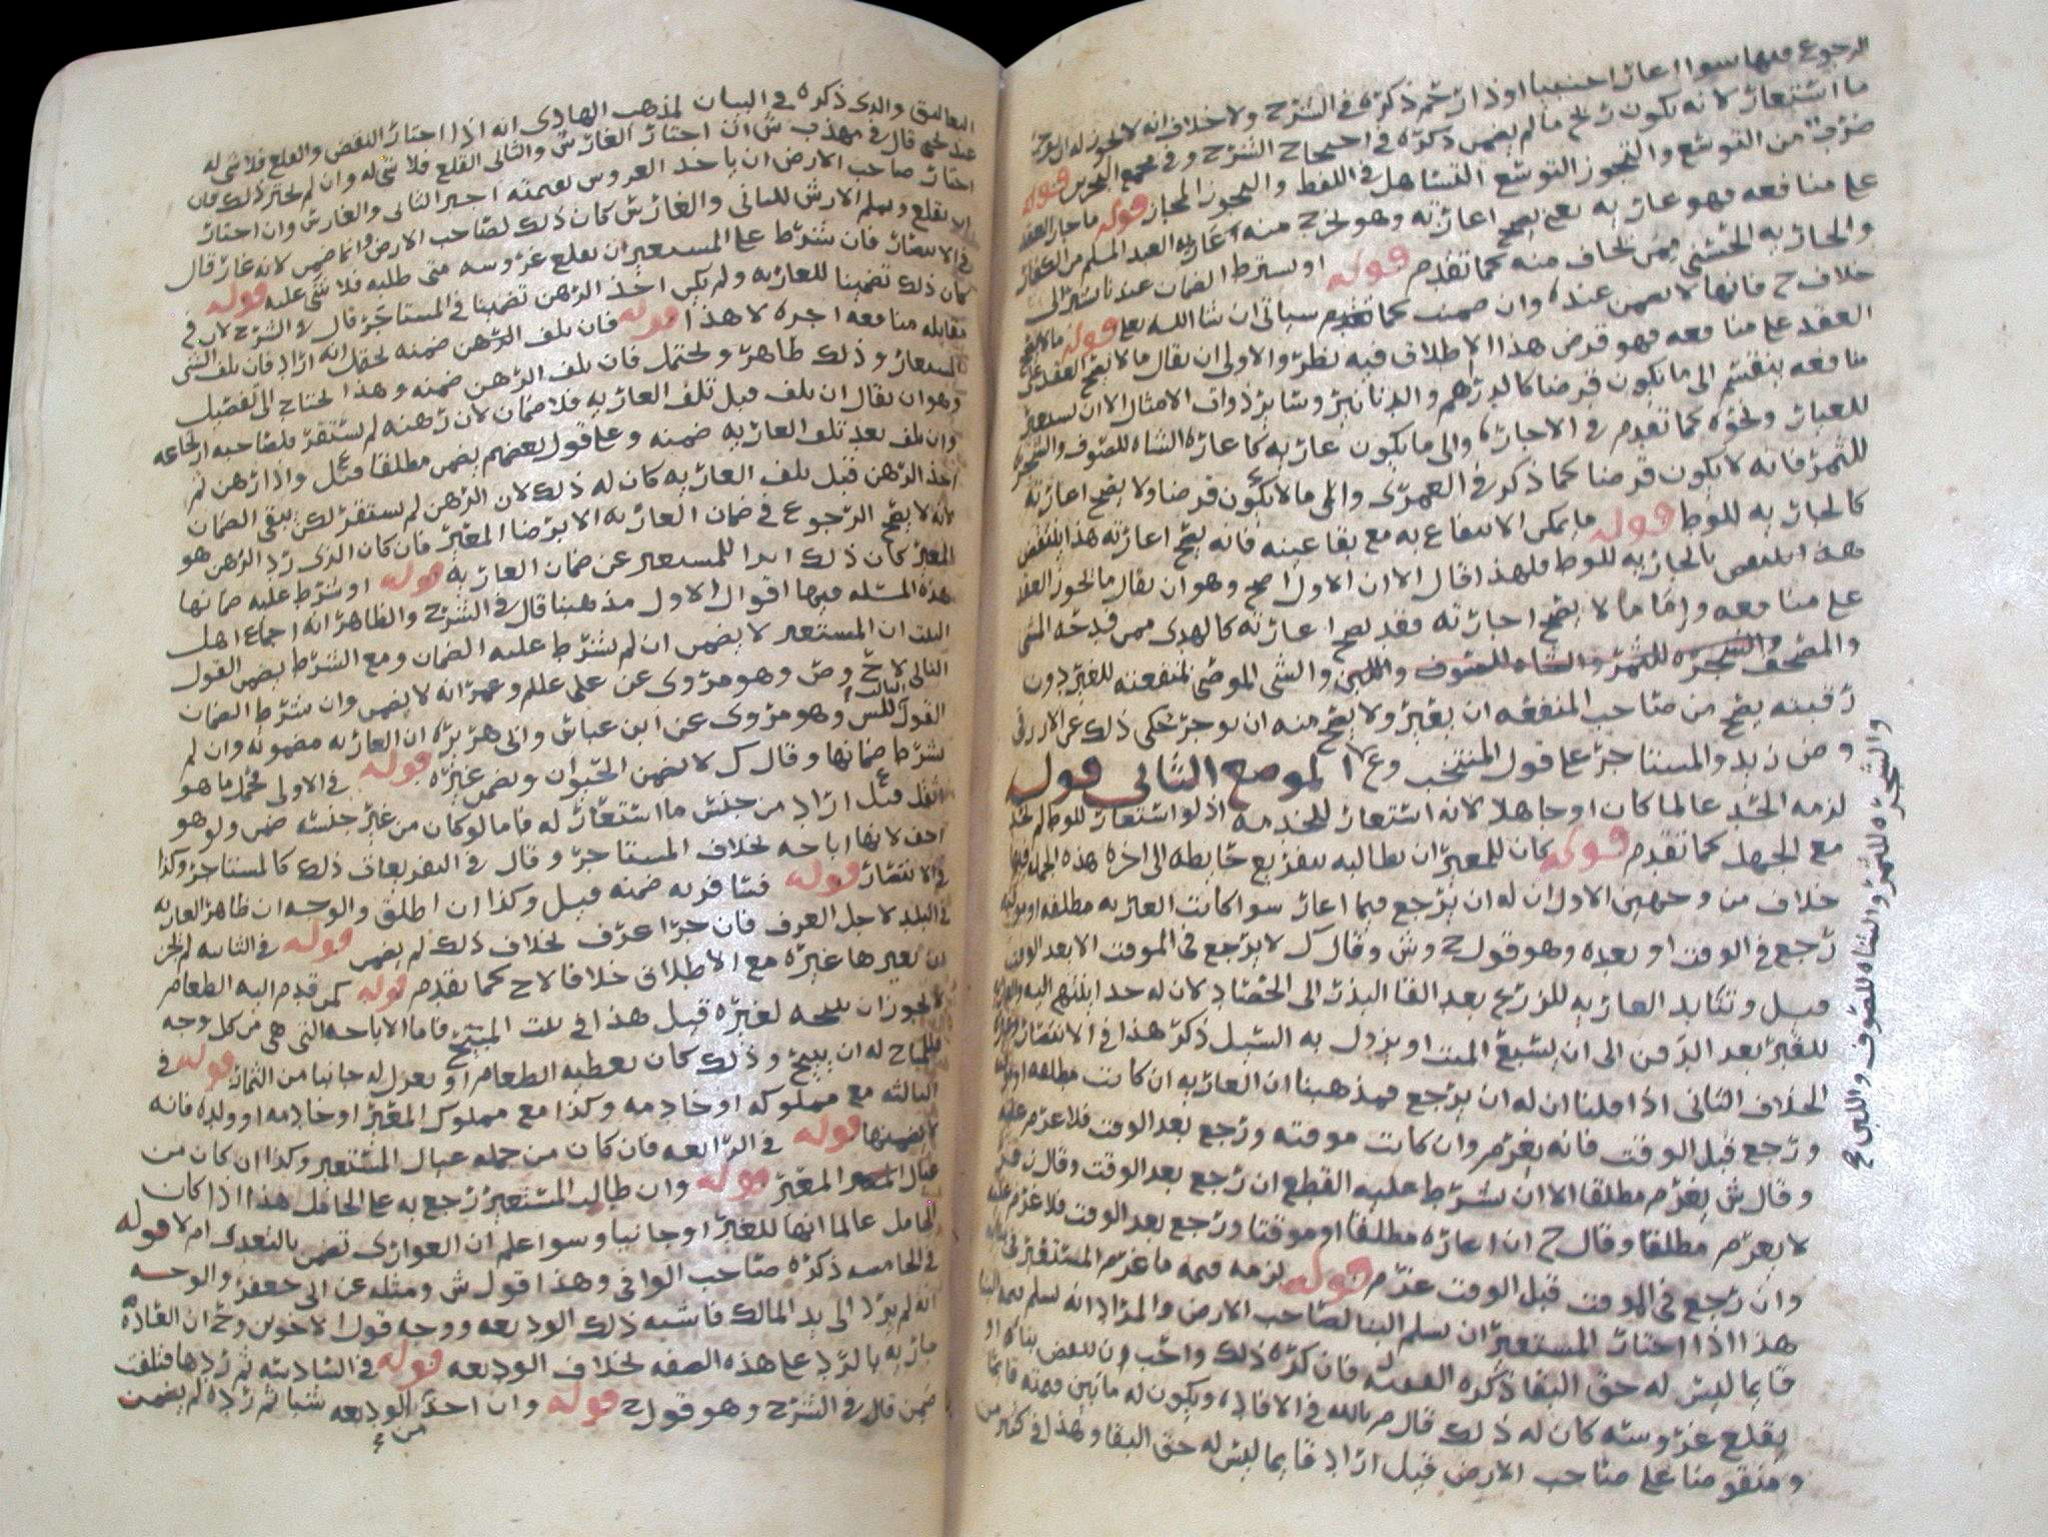 الرجوع فيها سوا اعار اجنبيا او ذا رحم ذكره في الشرح ولا خلاف انه لا يجوز له ان
ما استعار لانه يكون رهن ما لم يضمن ذكره في احتجاج الشرح وفي مجمع البحرين قوله
ضرب من التوسع والتجوز التوسع التساهل في اللفظ والتجوز المجاز قوله ما جاز العقد
على منافعه فهو عاريه يعني يصح اعارته وهو يخرج منه اعارة العبد المسلم من الكفار
والجاريه الخنثى ممن يخاف منه كما تقدم قوله او يشترط الضمان عندنا
خلاف ح فانها لا تضمن عنده وان ضمنت كما تقدم سياتي ان شا الله تعلى قوله ما لا يصح
العقد على منافعه فهو قرض هذا الاطلاق فيه نظر والاولى ان يقال ما لا يصح العقد على
منافعه ينقسم الى ما يكون قرضا كالدراهم والدنانير وسائر ذوات الامثال الا ان يستعير
للعيار ونحوه كما تقدم في الاجاره والى ما يكون عاريه كاعارة الشاه للصوف والشجر
للثمر فانه لا يكون قرضا كما ذكر في العمرى والى ما لا يكون قرضا ولا يصح اعارته
كالجاريه للوط قوله ما يمكن الانتفاع به مع بقا عينه فانه يصح اعارته هذا ينتقض
بالجاريه للوط فلهذا قال الا ان الاول اصح وهو ان يقال ما يجوز العقد
على منافعه واما ما لا يصح اجارته فقد يصح اعارته كالهدي
والمصحف والشجره للثمر والشاه للصوف واللبن والشي الموصى بمنفعته للغير دون
رقبته يصح من صاحب المنفعه ان يعير ولا يصح منه ان يوجر حكى ذلك عن الازرقي
و ض زيد والمستاجر على قول المنتخب وع الموضع الثاني قوله
لزمه الحد عالما كان او جاهلا لانه استعار للخدمه اذ لو استعار للوط لم يحد
مع الجهل كما تقدم قوله كان للمعير ان يطالبه بتفريع حايطه الى اخره هذه الجمله فيها
خلاف من وجهين الاول ان له ان يرجع فيما اعار سوا كانت العاريه مطلقه او موقته
رجع في الوقت او بعده وهو قول ح وش وقال ك لا يرجع في الموقت الا بعد الوقت
قيل وتتابد العاريه للزرع بعد القا البذر الى الحصاد لان له حد ينتهي اليه
للقبر بعد الدفن الى ان يشيع الميت او يزول به السيل ذكر هذا في الانتصار
الخلاف الثاني اذا قلنا ان له ان يرجع فمذهبنا ان العاريه ان كانت مطلقه او موقته
ورجع قبل الوقت فانه يغرم وان كانت موقته ورجع بعد الوقت فلا غرم عليه
وقال ش يغرم مطلقا الا ان يشرط عليه القطع ان رجع بعد الوقت وقال
لا يغرم مطلقا وقال ح ان اعاره مطلقا او موقتا ورجع بعد الوقت فلا غرم عليه
وان رجع في الموقت قبل الوقت غرم قوله لزمه قيمه ما غرم المستعير في
هذا اذا اختار المستعير ان يسلم البنا لصاحب الارض والمراد انه يسلم قيمه البنا
قايما ليس له حق البقا ذكره الفقيه فان كره ذلك واحب ان ينقض بناه او
يقلع غروسه كان له ذلك قال م بالله في الافاده ويكون له ما بين قيمته قايما
ومنقوضا على صاحب الارض قيل اراد قايما ليس له حق البقا وهذا في كثير من
والشجره للثمر والشاه للصوف واللبن صح
التعاليق والذي ذكره في البيان لمذهب الهادي انه اذا اختار النقض والقلع فلا شي له
قال في مهذب ش ان اختار الغارس والباني القلع فلا شي له وان لم يختر ذلك فان
اختار صاحب الارض ان ياخذ الغروس بقيمته اجبر الباني والغارس وان اختار
ان يقلع ويسلم الارش للباني والغارس كان ذلك لصاحب الارض وانما ضمن لانه غار قال
في الانتصار فان شرط على المستعير ان يقلع غروسه متى طلبه فلا شي عليه قوله
كان ذلك تضمينا للعاريه ولم يكن اخذ الرهن تضمينا في المستاجر قال في الشرح لان في
مقابله منافعه اجره لا هذا قوله فان تلف الرهن ضمنه يحتمل انه اراد فان تلف الشي
المستعار وذلك ظاهر ويحتمل فان تلف الرهن ضمنه وهذا يحتاج الى تفصيل
وهو ان يقال ان تلف قبل تلف العاريه فلا ضمان لان رهنه لم يستقر فلصاحبه ارتجاعه
وان تلف بعد تلف العاريه ضمنه وعلى قول بعضهم يضمن مطلقا قيل واذا رهن ثم
اخذ الرهن قبل تلف العاريه كان له ذلك لان الرهن لم يستقر لكن يبقى الضمان
لانه لا يصح الرجوع في ضمان العاريه الا برضا المعير فان كان الذي رد الرهن هو
المعير كان ذلك ابرا للمستعير عن ضمان العاريه قوله او شرط عليه ضمانها
هذه المسله فيها اقوال الاول مذهبنا قال في الشرح والظاهر انه اجماع اهل
البيت ان المستعير لا يضمن ان لم يشرط عليه الضمان ومع الشرط يضمن القول
الثاني لاح وص وهو مروي عن علي علم وعمر انه لا يضمن وان شرط الضمان
القول الثالث لش وهو مروي عن ابن عباس وابي هريره ان العاريه مضمونه وان لم
يشرط ضمانها وقال ك لا يضمن الحيوان ويضمن غيره قوله في الاولى محمل ما هو
اثقل قيل اراد من جنس ما استعار له فاما لو كان من غير جنسه ضمن ولو هو
اخف لانها اباحه بخلاف المستاجر وقال في التفريعات ذلك كالمستاجر وكذا
في الانتصار قوله فسافر به ضمنه قيل وكذا ان اطلق والوجه ان ظاهر العاريه
في البلد لاجل العرف فان جرا عرف بخلاف ذلك لم يضمن قوله في الثانيه لم يجز
ان يعيرها غيره مع الاطلاق خلافا لاح كما تقدم قوله كمن قدم اليه الطعام
لا يجوز ان يبيحه لغيره قيل هذا في بيت المبيح فاما الاباحه التي هي من كل وجه
فللمباح له ان يبيح وذلك كان يعطيه الطعام او يعزل له جانبا من الثمار قوله في
الثالثه مع مملوكه او خادمه وكذا مع مملوك المعير او خادمه او ولده فانه
لا يضمنها قوله في الرابعه فان كان من جمله عيال المستعير وكذا ان كان من
عيال المعير قوله وان طالب المستعير رجع به على الحامل هذا اذا كان
الحامل عالما انها للغير او جانيا وسوا علم ان العواري تضمن بالتعدي ام لا قوله
في الخامسه ذكره صاحب الوافي وهذا قول ش ومثله عن ابي جعفر والوجه
انه لم يرد الى يد المالك فاشبه ذلك الوديعه ووجه قول الاخوين وح ان العاده
جاريه بالرد على هذه الصفه بخلاف الوديعه قوله في السادسه ثم ردها فتلفت
ضمن قال في الشرح وهو قول ح قوله وان اخذ من الوديعه شيا ثم رده لم يضمن